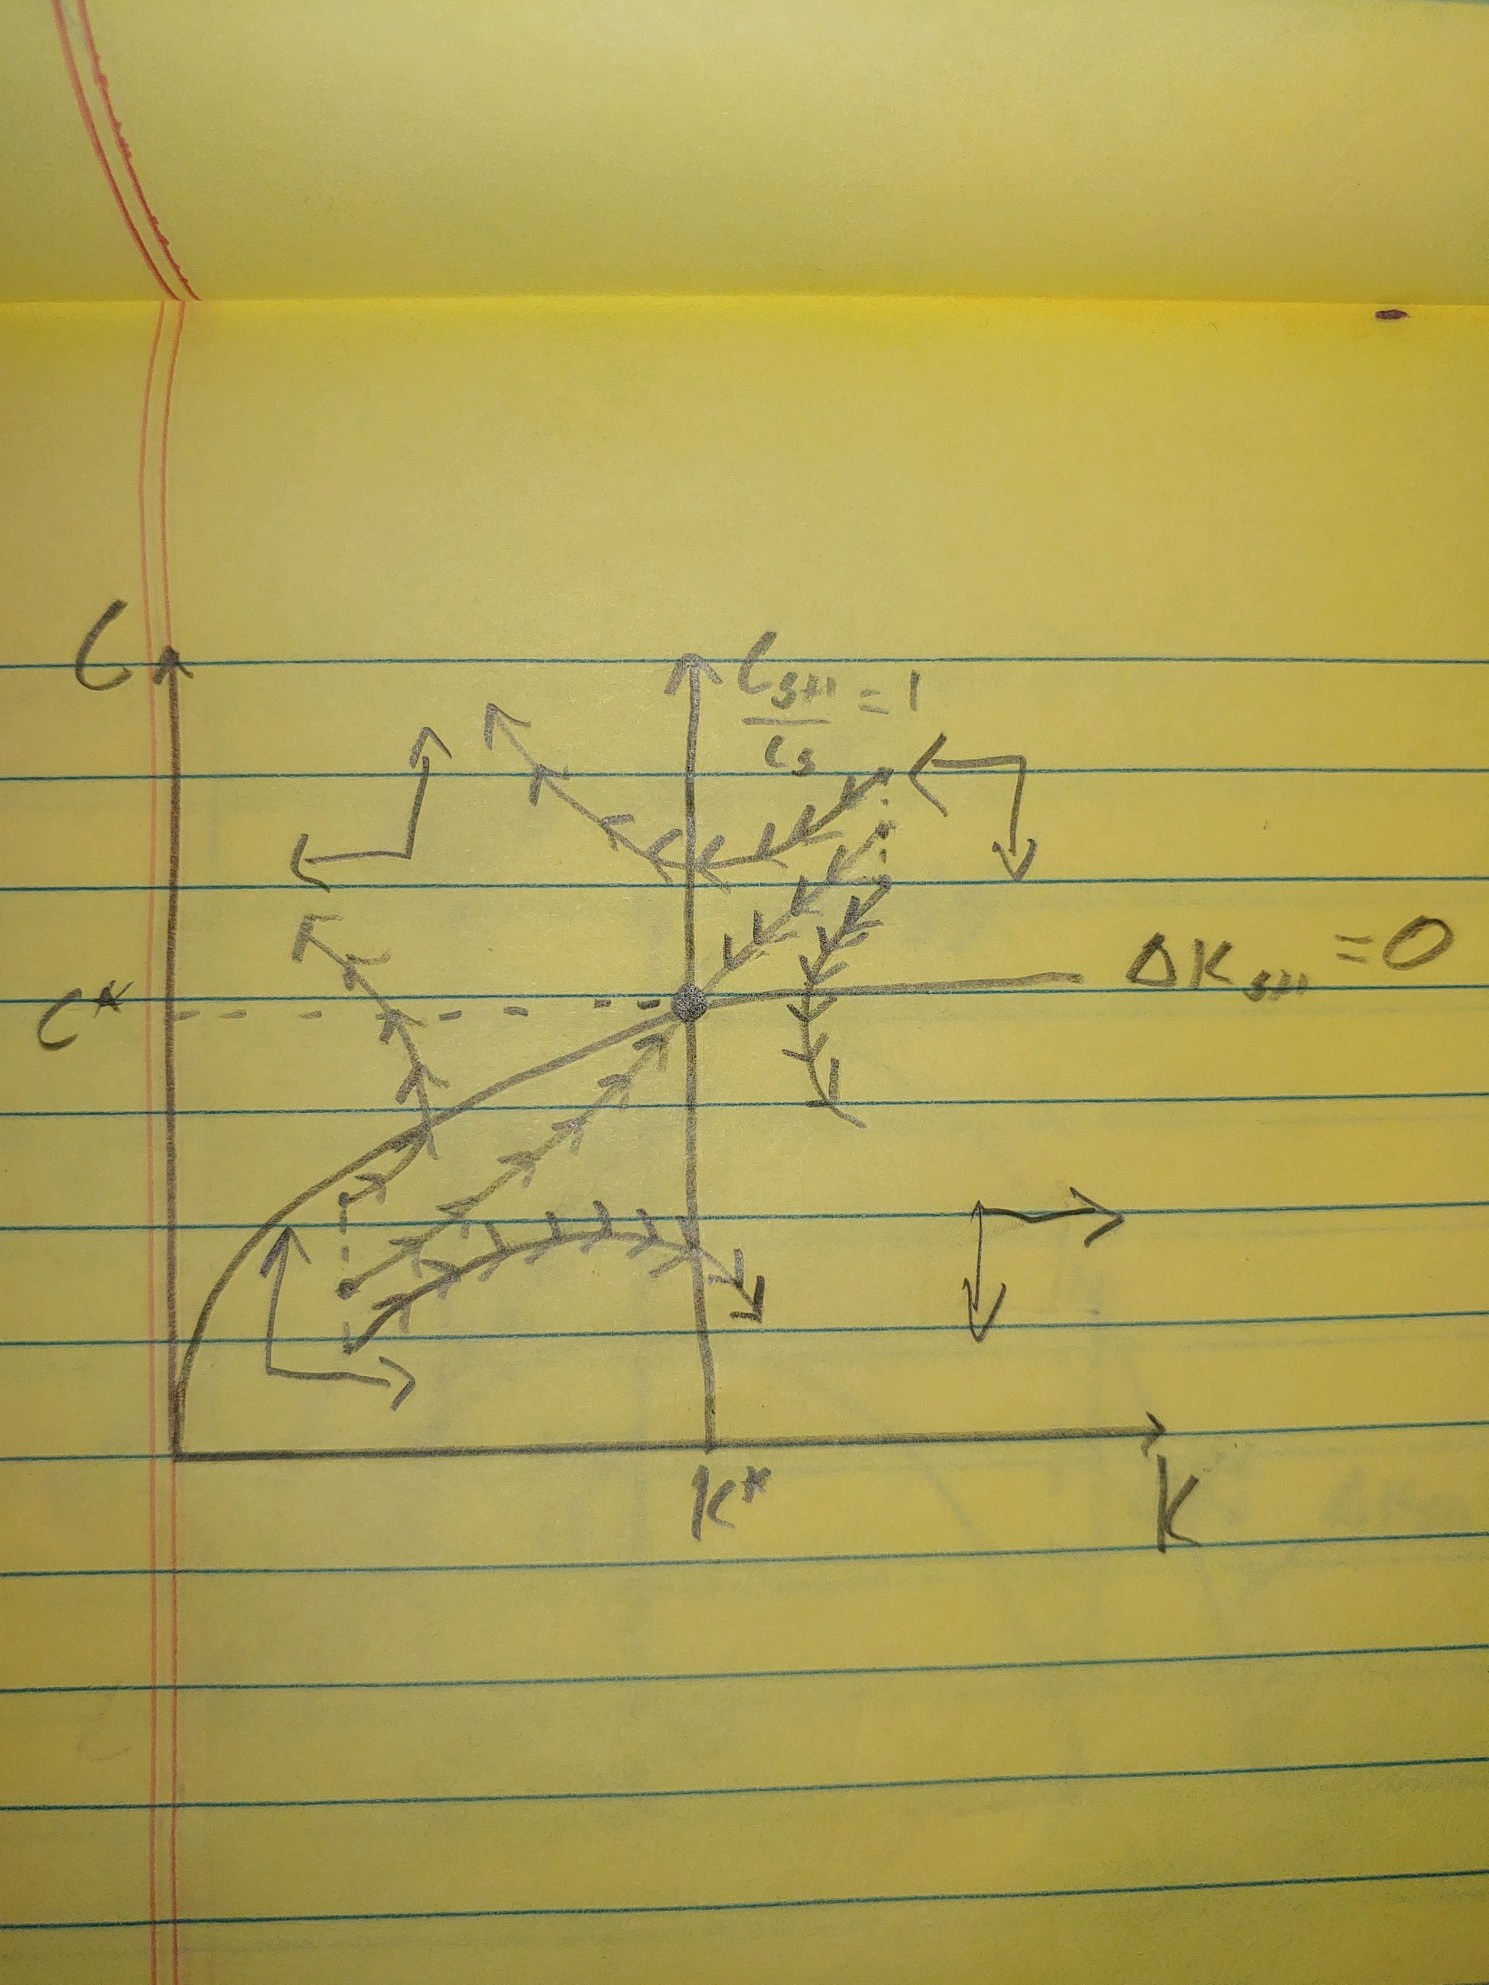 C
C_{s+1}/C_s = 1
ΔK_{s+1} = 0
C*
K*
K